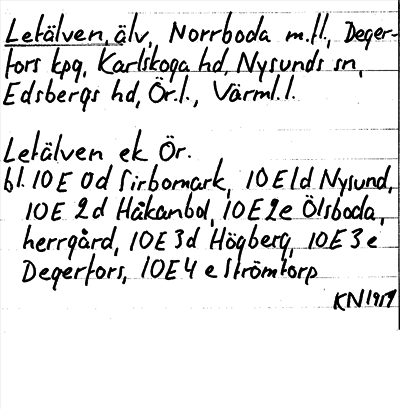 Letälven, älv, Norrboda m.fl., Deger-
fors kpg, Karlskoga hd, Nysunds sn,
Edsbergs hd, Ör.l., Värml.l.
Letälven ek Ör.
bl. 10E 0d Sirbomark, 10E1d Nysund,
10E 2d Håkanbol, 10E2e Ölsboda,
herrgård, 10E3d Högberg, 10E3e
Degerfors, 10E4e Strömtorp